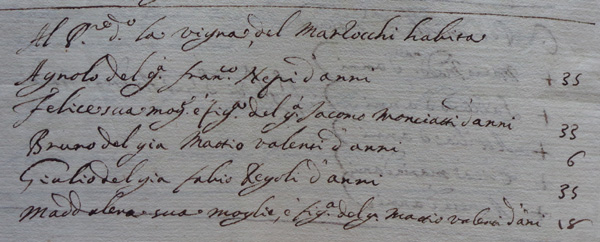 Al P.re d.o la vigna del Marlocchi habita
Agnolo del q.m fran.co Nepi d'anni + 35
Felice sua mog.e è fig.a del q.m Jacomo Monciatti d'anni 33
Bruno del gia Mattio valenti d'anni + 6
Giulio del gia fabio Regoli d'anni 35
Maddalena sua moglie, è fig.a del q.m Mattio valenti d'ani 18